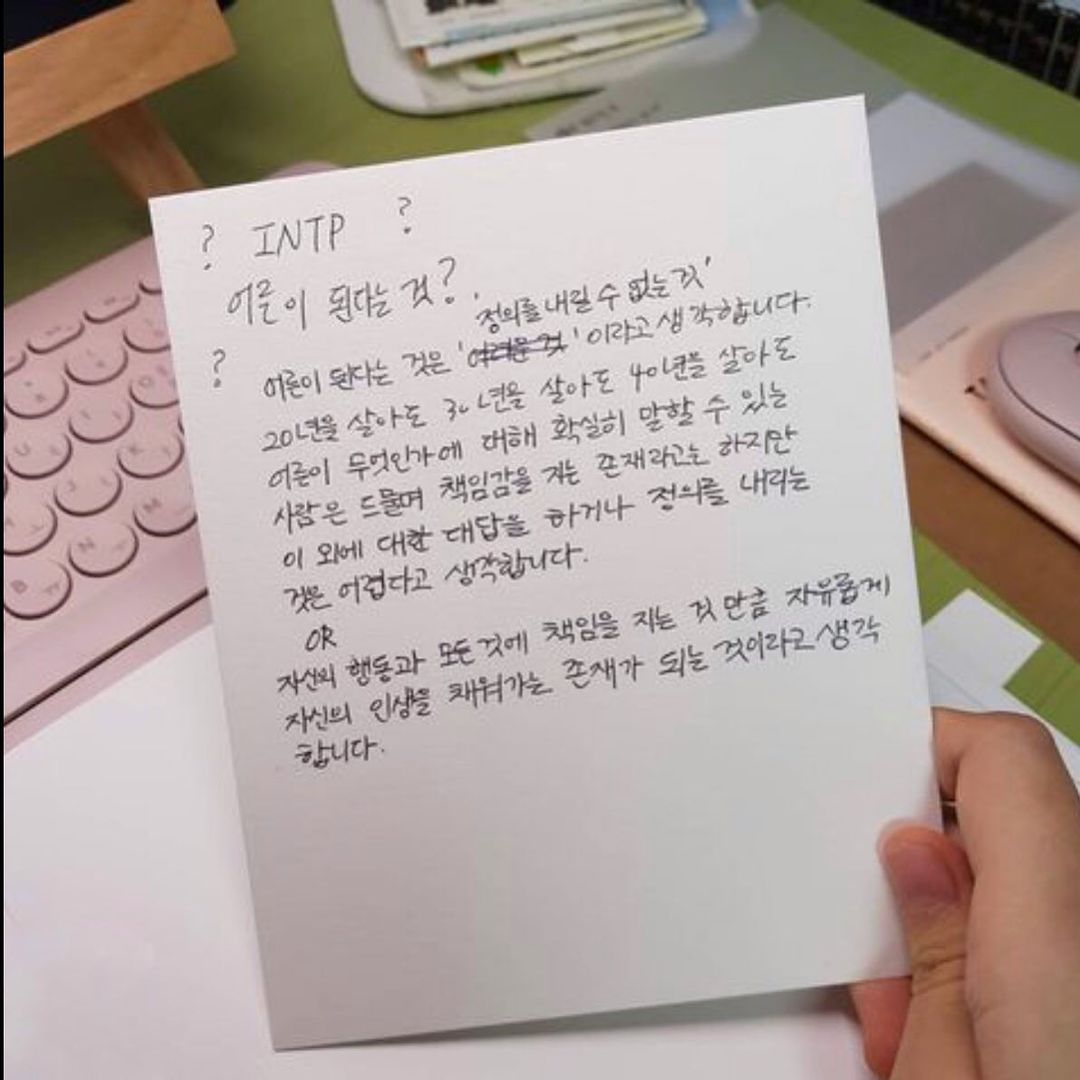 ? INTP ?
어른이 된다는 것?
'정의를 내릴 수 없는 것'
? 어른이 된다는 것은 '어려운 것' 이라고 생각합니다.
20년을 살아도 30년을 살아도 40년을 살아도
어른이 무엇인가에 대해 확실히 말할 수 있는
사람은 드물며 책임감을 지는 존재라고는 하지만
이 외에 대한 대답을 하거나 정의를 내리는
것은 어렵다고 생각합니다.
OR
자신의 행동과 모든 것에 책임을 지는 것 만큼 자유롭게
자신의 인생을 채워가는 존재가 되는 것이라고 생각
합니다.